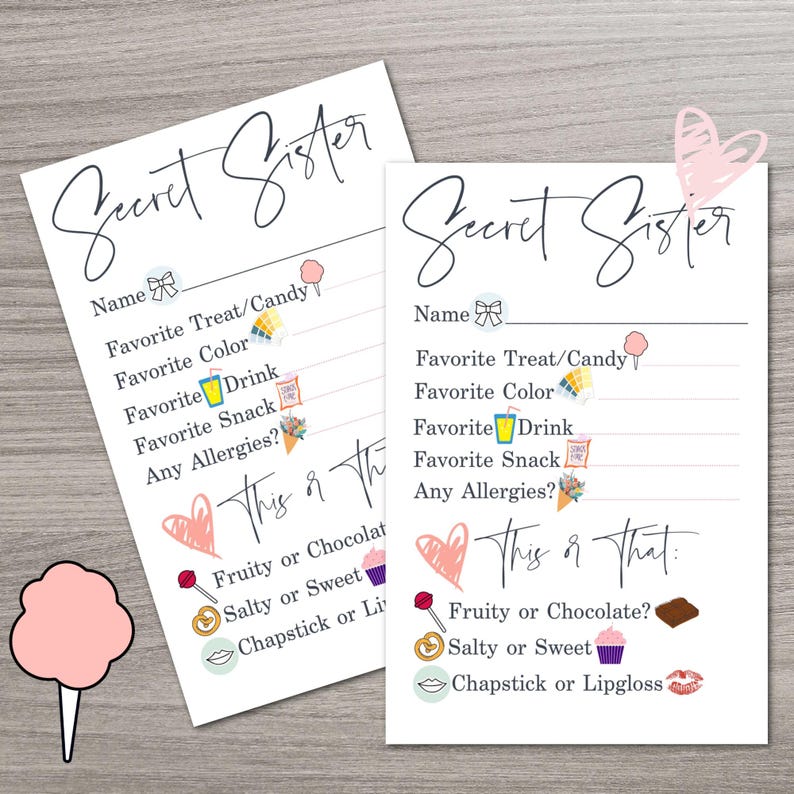 Secret Sister
Name
Favorite Treat/Candy
Favorite Color
Favorite Drink
Favorite Snack
Any Allergies?
This or Tha
Fruity or Chocolat
Salty or Sweet
Chapstick or Li
Secret Sister
Name
Favorite Treat/Candy
Favorite Color
Favorite Drink
Favorite Snack
Any Allergies?
This or That:
Fruity or Chocolate?
Salty or Sweet
Chapstick or Lipgloss